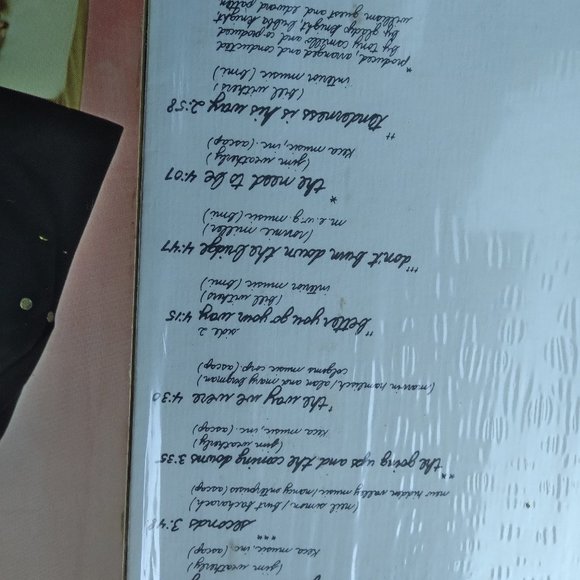 (jim weatherly)
keca music, inc (ascap)
****
seconds
(neil simon / burt bacharach)
new hidden valley music / nancy enterprises (ascap)
** the going ups and the coming downs 3:35
(jim weatherly)
keca music, inc. (ascap)
* the way we were 4:30
(marvin hamlisch / alan and marilyn bergman)
colgems music corp. (ascap)
side 2
** better you go your way 4:15
(bill withers)
interior music (bmi)
*** don't burn down the bridge 4:47
(ronnie miller)
music (bmi)
*
the need to be 4:07
(jim weatherly)
keca music, inc. (ascap)
**
tenderness is his way 2:58
(bill withers)
interior music (bmi)
* produced, arranged and conducted
by tony camillo and co-produced
by gladys knight, bubba knight
william guest and edward patten